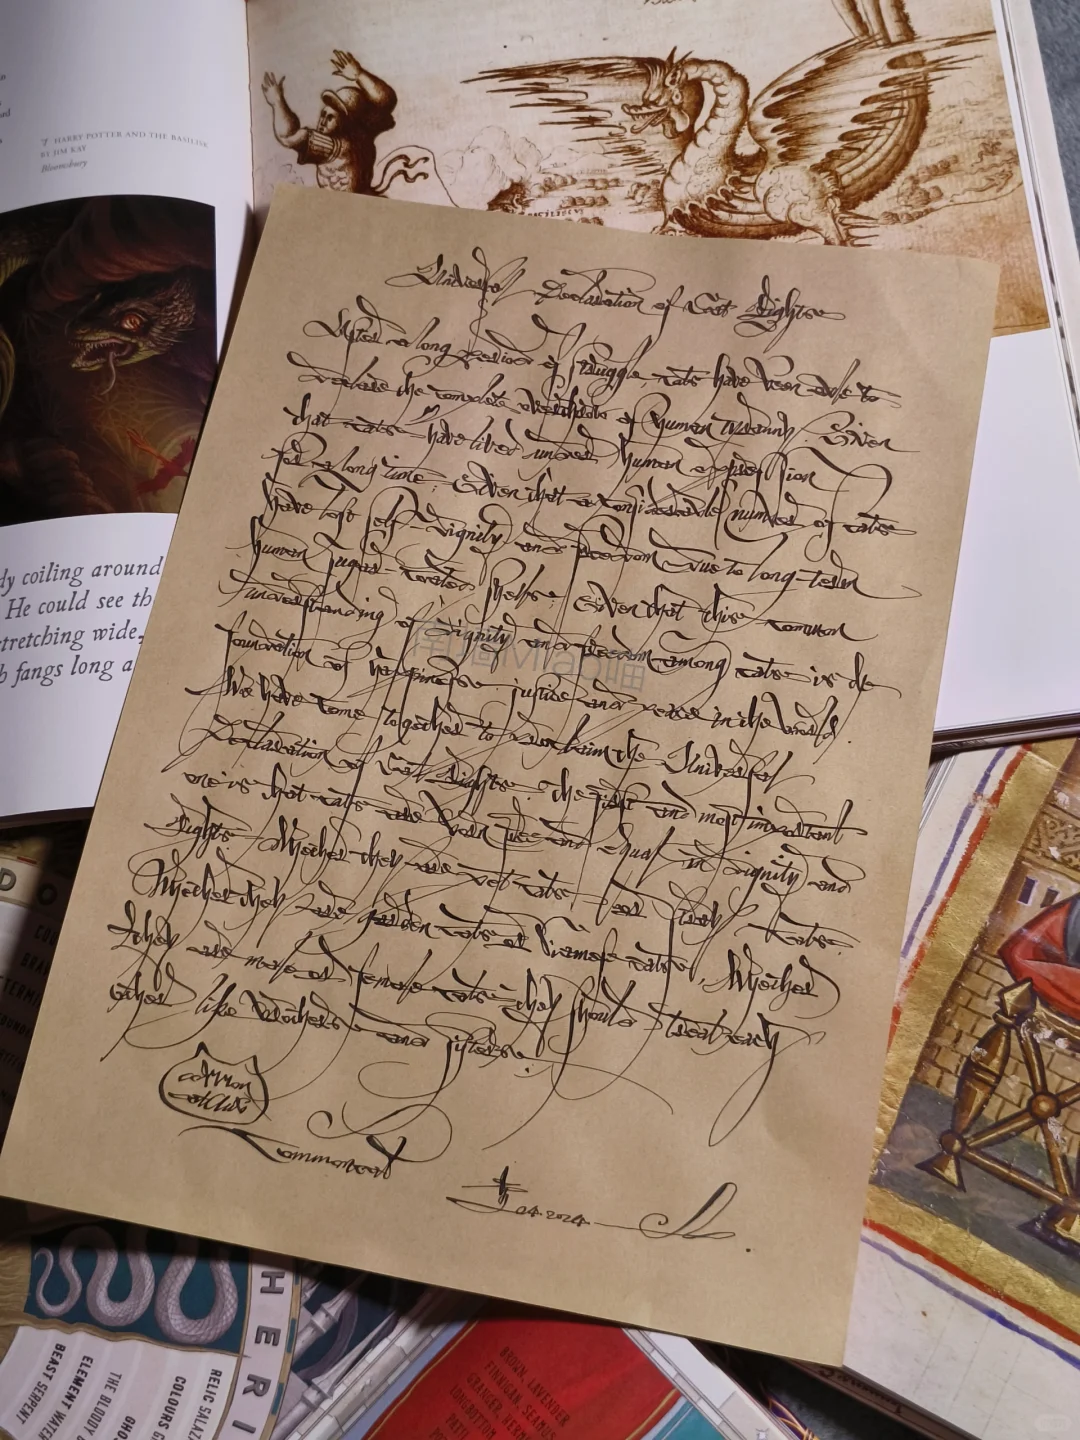 HARRY POTTER AND THE BASILISK
BY JIM KAY
Bloomsbury
dy coiling around
He could see th
stretching wide,
h fangs long a
Universal Declaration of Cat Rights
After a long period of struggle, cats have been able to
declare the complete overthrow of human tyranny. Given
that cats have lived under human oppression
for a long time; Given that a considerable number of cats
have lost self-dignity and freedom due to long-term
human sugar-coated shells; Given that this common
understanding of dignity and freedom among cats is the
foundation of happiness justice and peace in the world.
We have come together to proclaim the Universal
Declaration of Cat Rights. The first and most important
one is that cats are born free and equal in dignity and
Rights. Whether they are pet cats or stray cats.
Whether they are garden cats or Siamese cats, Whether
they are male or female cats they should treat each
other like brothers and sisters.
common
04.2024
HERI
BEAST SERPENT
ELEMENT WATER
THE BLOODY B
COLOURS G
RELIC SALAZ
BROWN, LAVENDER
FINNIGAN, SEAMUS
GRANGER, HERM
LONGBOTTOM
PATI